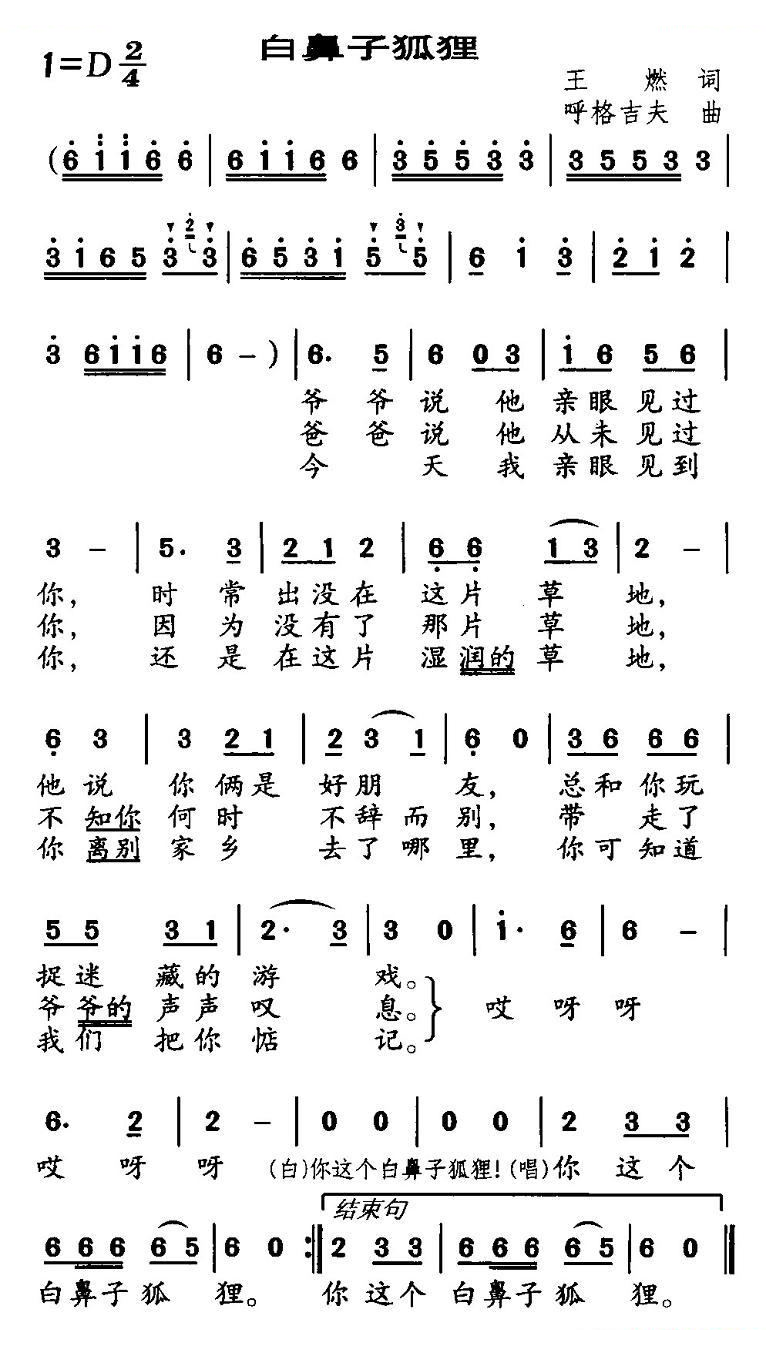 白鼻子狐狸
1=D 2/4
王 燃 词
呼格吉夫 曲
(6 i i i 6 6 | 6 i i 6 6 | 3 5 5 3 3 | 3 5 5 3 3 |
3 i 6 5 3 2 3 | 6 5 3 i 5 3 5 | 6 i 3 | 2 i 2 |
3 6 i i 6 | 6 - ) | 6. 5 | 6 0 3 | i 6 5 6 |
爷 爷 说 他 亲 眼 见 过
爸 爸 说 他 从 未 见 过
今 天 我 亲 眼 见 到
3 - | 5. 3 | 2 1 2 | 6 6 1 3 | 2 - |
你, 时 常 出 没 在 这 片 草 地,
你, 因 为 没 有 了 那 片 草 地,
你, 还 是 在 这 片 湿 润的 草 地,
6 3 | 3 2 1 | 2 3 1 | 6 0 | 3 6 6 6 |
他 说 你 俩 是 好 朋 友, 总 和 你 玩
不 知你 何 时 不 辞 而 别, 带 走 了
你 离别 家 乡 去 了 哪 里, 你 可 知 道
5 5 3 1 | 2· 3 | 3 0 | i· 6 | 6 - |
捉 迷 藏 的 游 戏。
爷 爷的 声 声 叹 息。} 哎 呀 呀
我 们 把 你 惦 记。
6. 2 | 2 - | 0 0 | 0 0 | 2 3 3 |
哎 呀 呀 (白)你这个白鼻子狐狸!(唱)你 这 个
结束句
6 6 6 6 5 | 6 0 :| 2 3 3 | 6 6 6 6 5 | 6 0 ]|
白 鼻 子 狐 狸。 你 这 个 白 鼻 子 狐 狸。